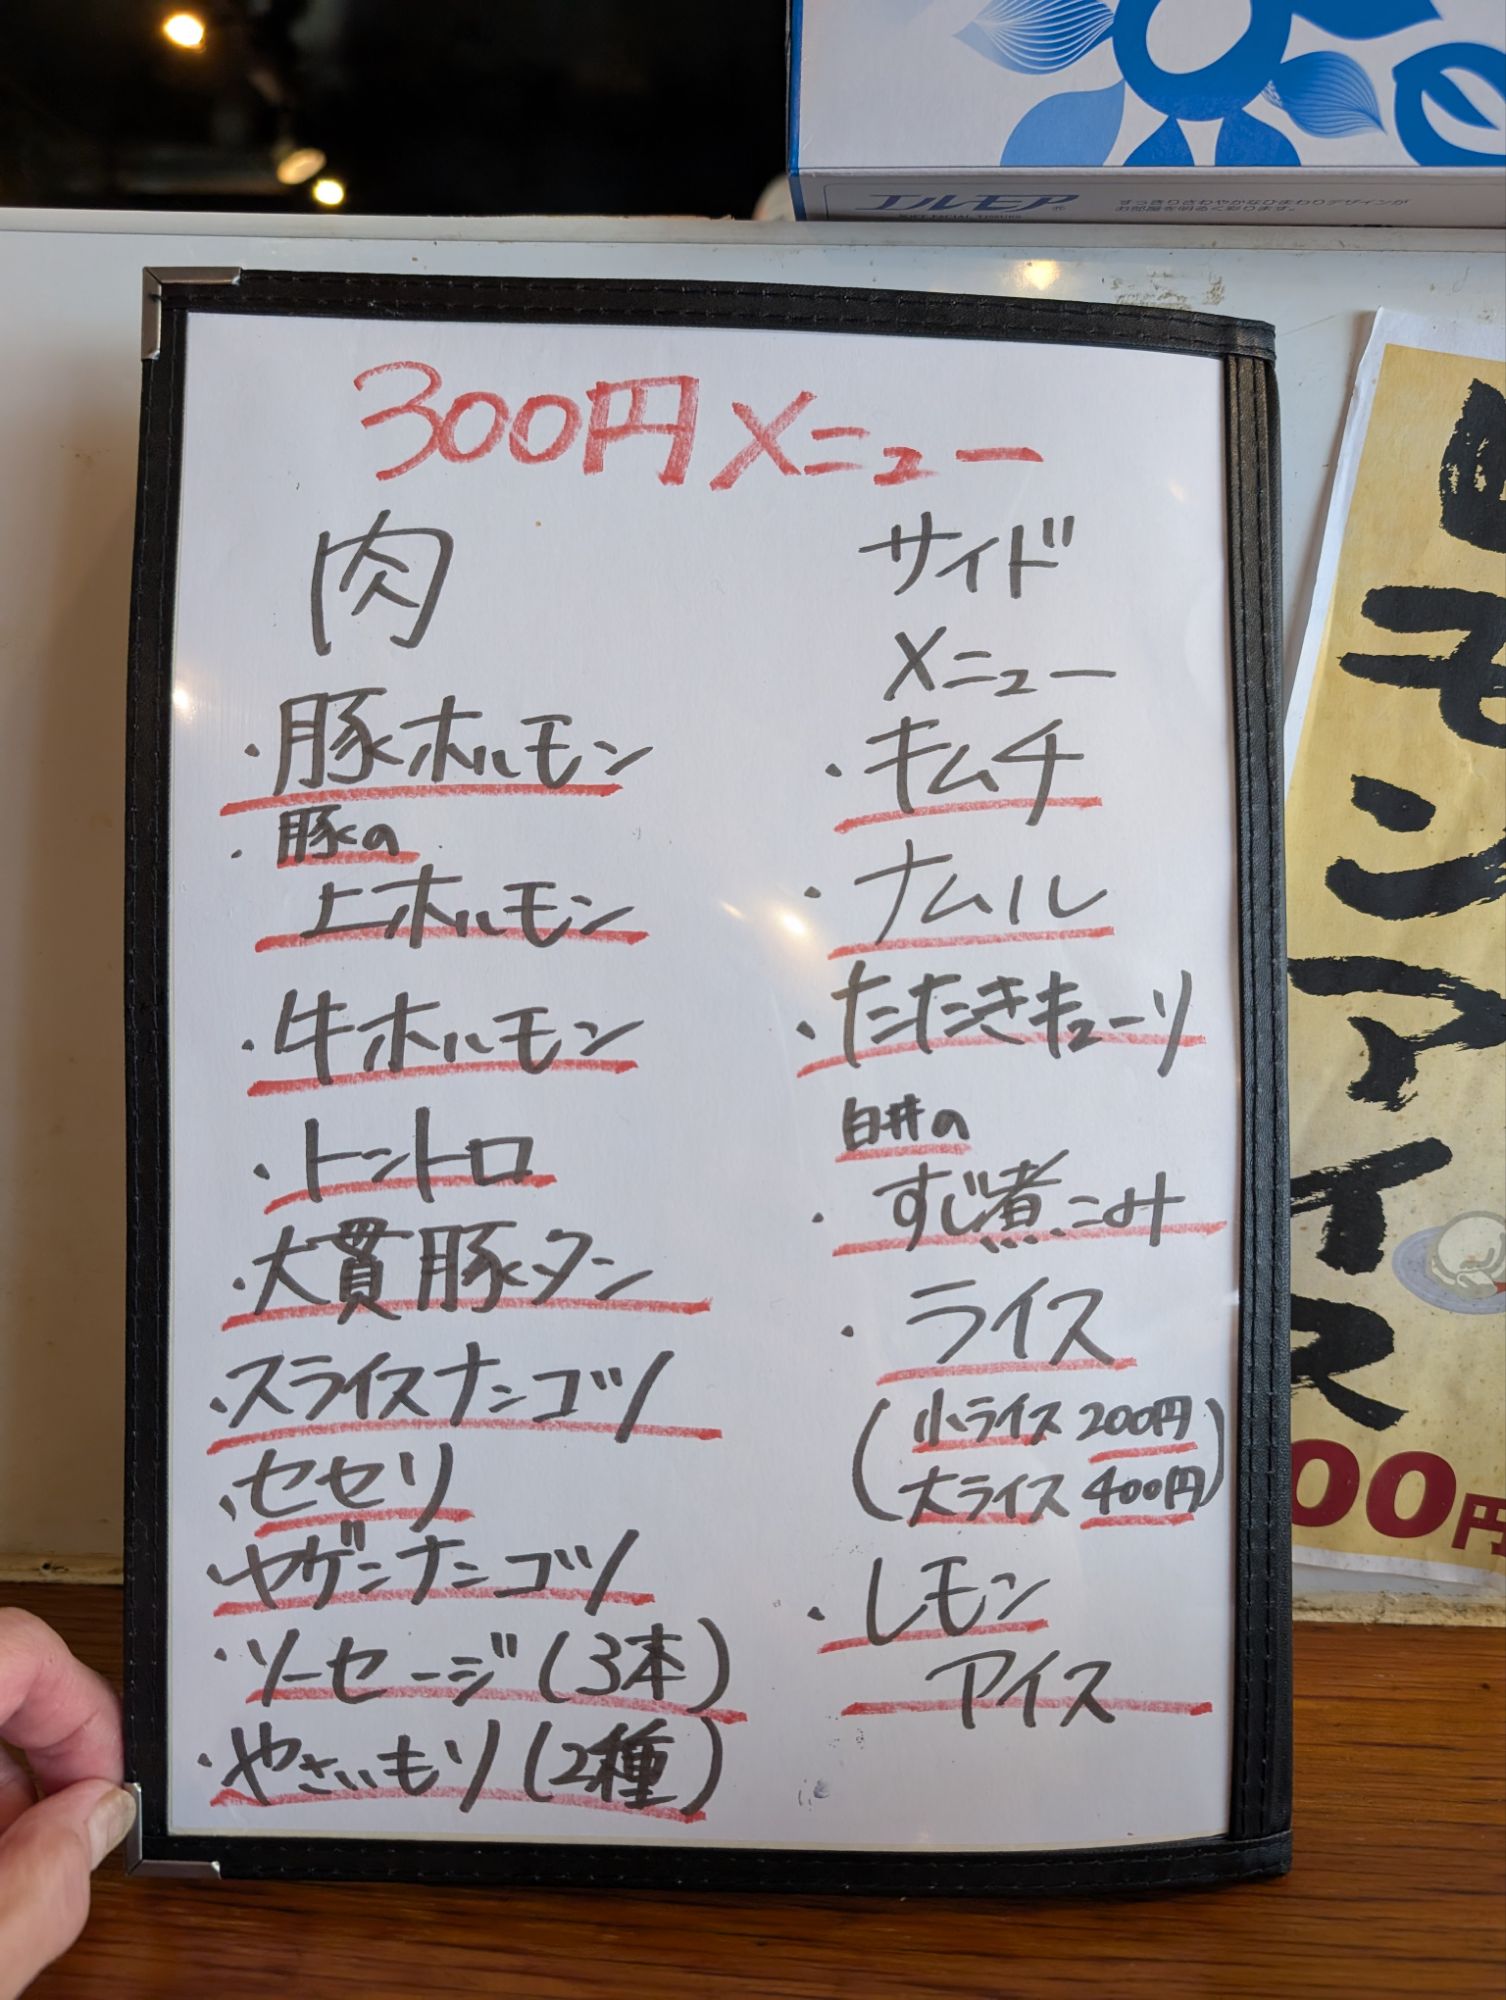 エルモア
すっきりさわやかなひまわりデザインが
お部屋を明るく彩ります。
300円メニュー
肉
・豚ホルモン
・豚の
上ホルモン
・牛ホルモン
・トントロ
・大貫豚タン
・スライスナンコツ
・セセリ
ヤゲンナンコツ
・ソーセージ(3本)
・やさいもり(2種)
サイド
メニュー
・キムチ
・ナムル
・たたきキューリ
白井の
・すじ煮こみ
・ライス
(小ライス 200円
大ライス 400円)
・レモン
アイス
レモンアイス
00円